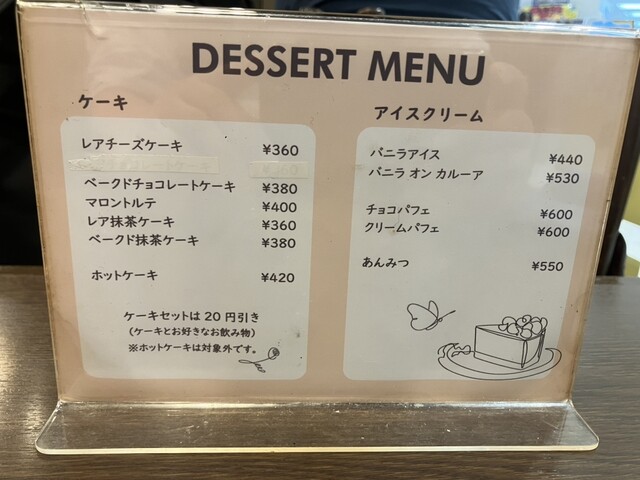 DESSERT MENU
ケーキ
レアチーズケーキ ¥360
ベークドチョコレートケーキ ¥380
マロントルテ ¥400
レア抹茶ケーキ ¥360
ベークド抹茶ケーキ ¥380
ホットケーキ ¥420
ケーキセットは 20 円引き
(ケーキとお好きなお飲み物)
※ホットケーキは対象外です。
アイスクリーム
バニラアイス ¥440
バニラ オン カルーア ¥530
チョコパフェ ¥600
クリームパフェ ¥600
あんみつ ¥550